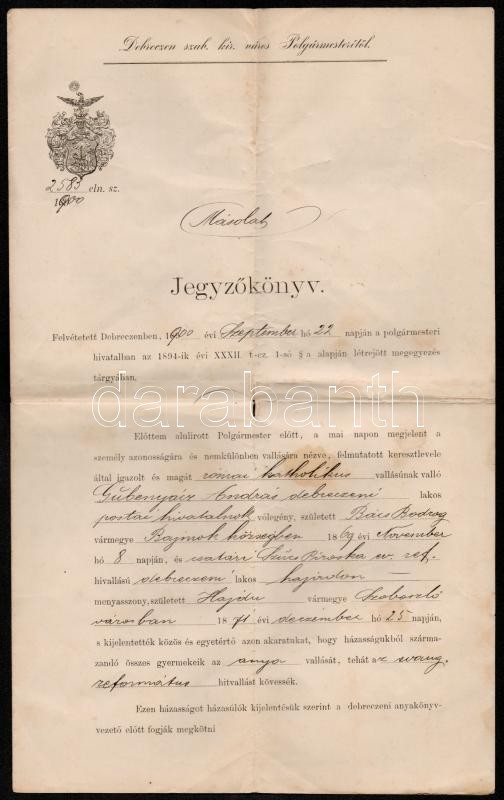 Debreczen szab. kir. város Polgármesterétől.
2585 eln. sz.
1900
Másolat
Jegyzőkönyv.
Felvétetett Debreczenben, 1900 évi Szeptember hó 22 napján a polgármesteri
hivatalban az 1894-ik évi XXXII. t.-cz. 1-ső § a alapján létrejött megegyezés
tárgyában.
darabanth
Előttem alulirott Polgármester előtt, a mai napon megjelent a
személy azonosságára és nemkülönben vallására nézve, felmutatott keresztlevele
által igazolt és magát római katholikus vallásúnak valló
András debreczeni lakos
postai hivatalnok vőlegény, született Bács Bodrog
vármegye Bajmok községben 1869 évi November
hó 8 napján, és csatári Szűcs Piroska ev. ref.
hitvallású debreczeni lakos hajadon —
menyasszony, született Hajdu vármegye Szoboszló
városban 1871 évi deczember hó 25 napján,
s kijelentették közös és egyetértő azon akaratukat, hogy házasságukból szárma-
zandó összes gyermekeik az anya vallását, tehát az evang.
református hitvallást kövessék.
Ezen házasságot házasúlók kijelentésük szerint a debreczeni anyakönyv-
vezető előtt fogják megkötni